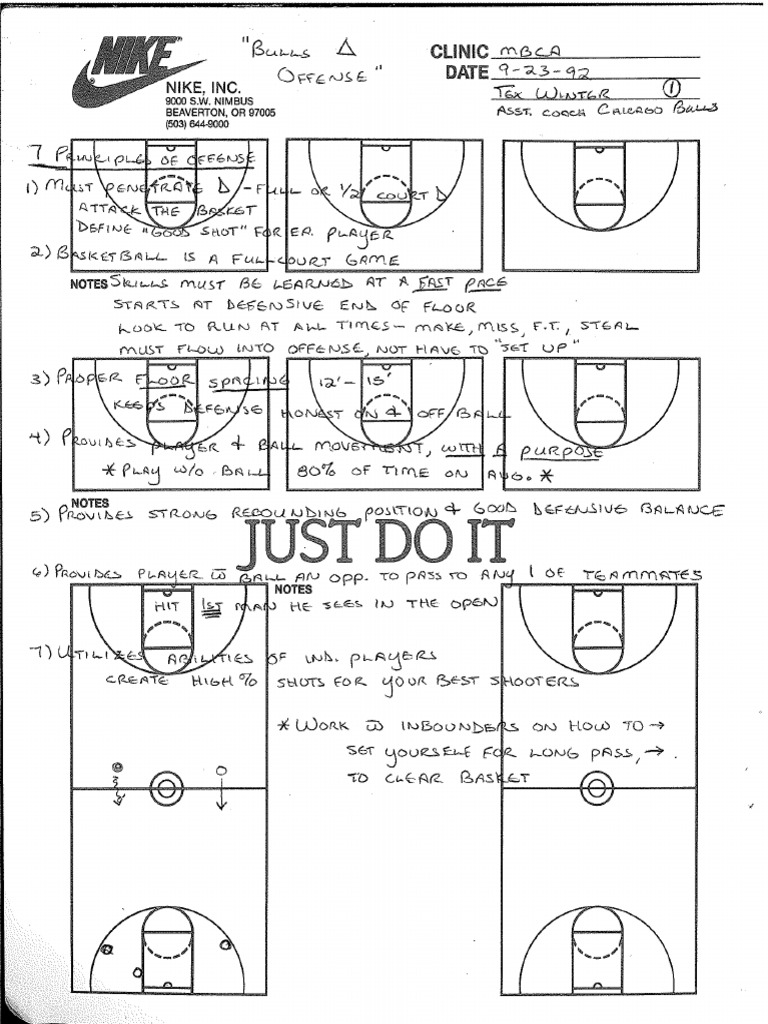 NIKE
NIKE, INC.
9000 S.W. NIMBUS
BEAVERTON, OR 97005
(503) 644-9000
"BULLS Δ
OFFENSE"
CLINIC MBCA
DATE 9-23-92
TEX WINTER ①
ASST. COACH CHICAGO BULLS
7 PRINCIPLES OF OFFENSE
1) MUST PENETRATE D - FULL OR 1/2 COURT D
ATTACK THE BASKET
DEFINE "GOOD SHOT" FOR EA. PLAYER
2) BASKETBALL IS A FULL COURT GAME
NOTES SKILLS MUST BE LEARNED AT A FAST PACE
STARTS AT DEFENSIVE END OF FLOOR
LOOK TO RUN AT ALL TIMES - MAKE, MISS, F.T., STEAL
MUST FLOW INTO OFFENSE, NOT HAVE TO "SET UP"
3) PROPER FLOOR SPACING 12'-15'
KEEPS DEFENSE HONEST ON & OFF BALL
4) PROVIDES PLAYER & BALL MOVEMENT, WITH A PURPOSE
* PLAY W/O BALL 80% OF TIME ON AVG. *
NOTES
5) PROVIDES STRONG REBOUNDING POSITION & GOOD DEFENSIVE BALANCE
JUST DO IT
6) PROVIDES PLAYER w̄ BALL AN OPP. TO PASS TO ANY 1 OF TEAMMATES
NOTES
HIT 1ST MAN HE SEES IN THE OPEN
7) UTILIZES ABILITIES OF IND. PLAYERS
CREATE HIGH % SHOTS FOR YOUR BEST SHOOTERS
* WORK w̄ INBOUNDERS ON HOW TO →
SET YOURSELF FOR LONG PASS, →
TO CLEAR BASKET